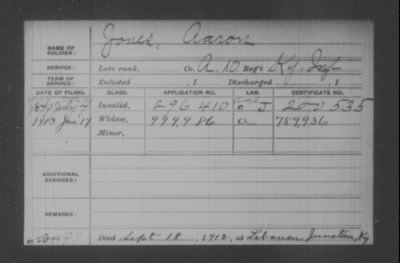 Jones, Aaron
NAME OF SOLDIER:
SERVICE: Late rank, Co. A, 10 Reg't Ky. Inf.
TERM OF SERVICE: Enlisted , 1 Discharged , 1
DATE OF FILING. CLASS. APPLICATION NO. LAW. CERTIFICATE NO.
Invalid, 296 410 J 200 535
1913 Jan 17 Widow, 999,986 a 759,936
Minor,
ADDITIONAL SERVICES:
REMARKS:
Died Sept 18, 1912, at Lebanon Junction, Ky